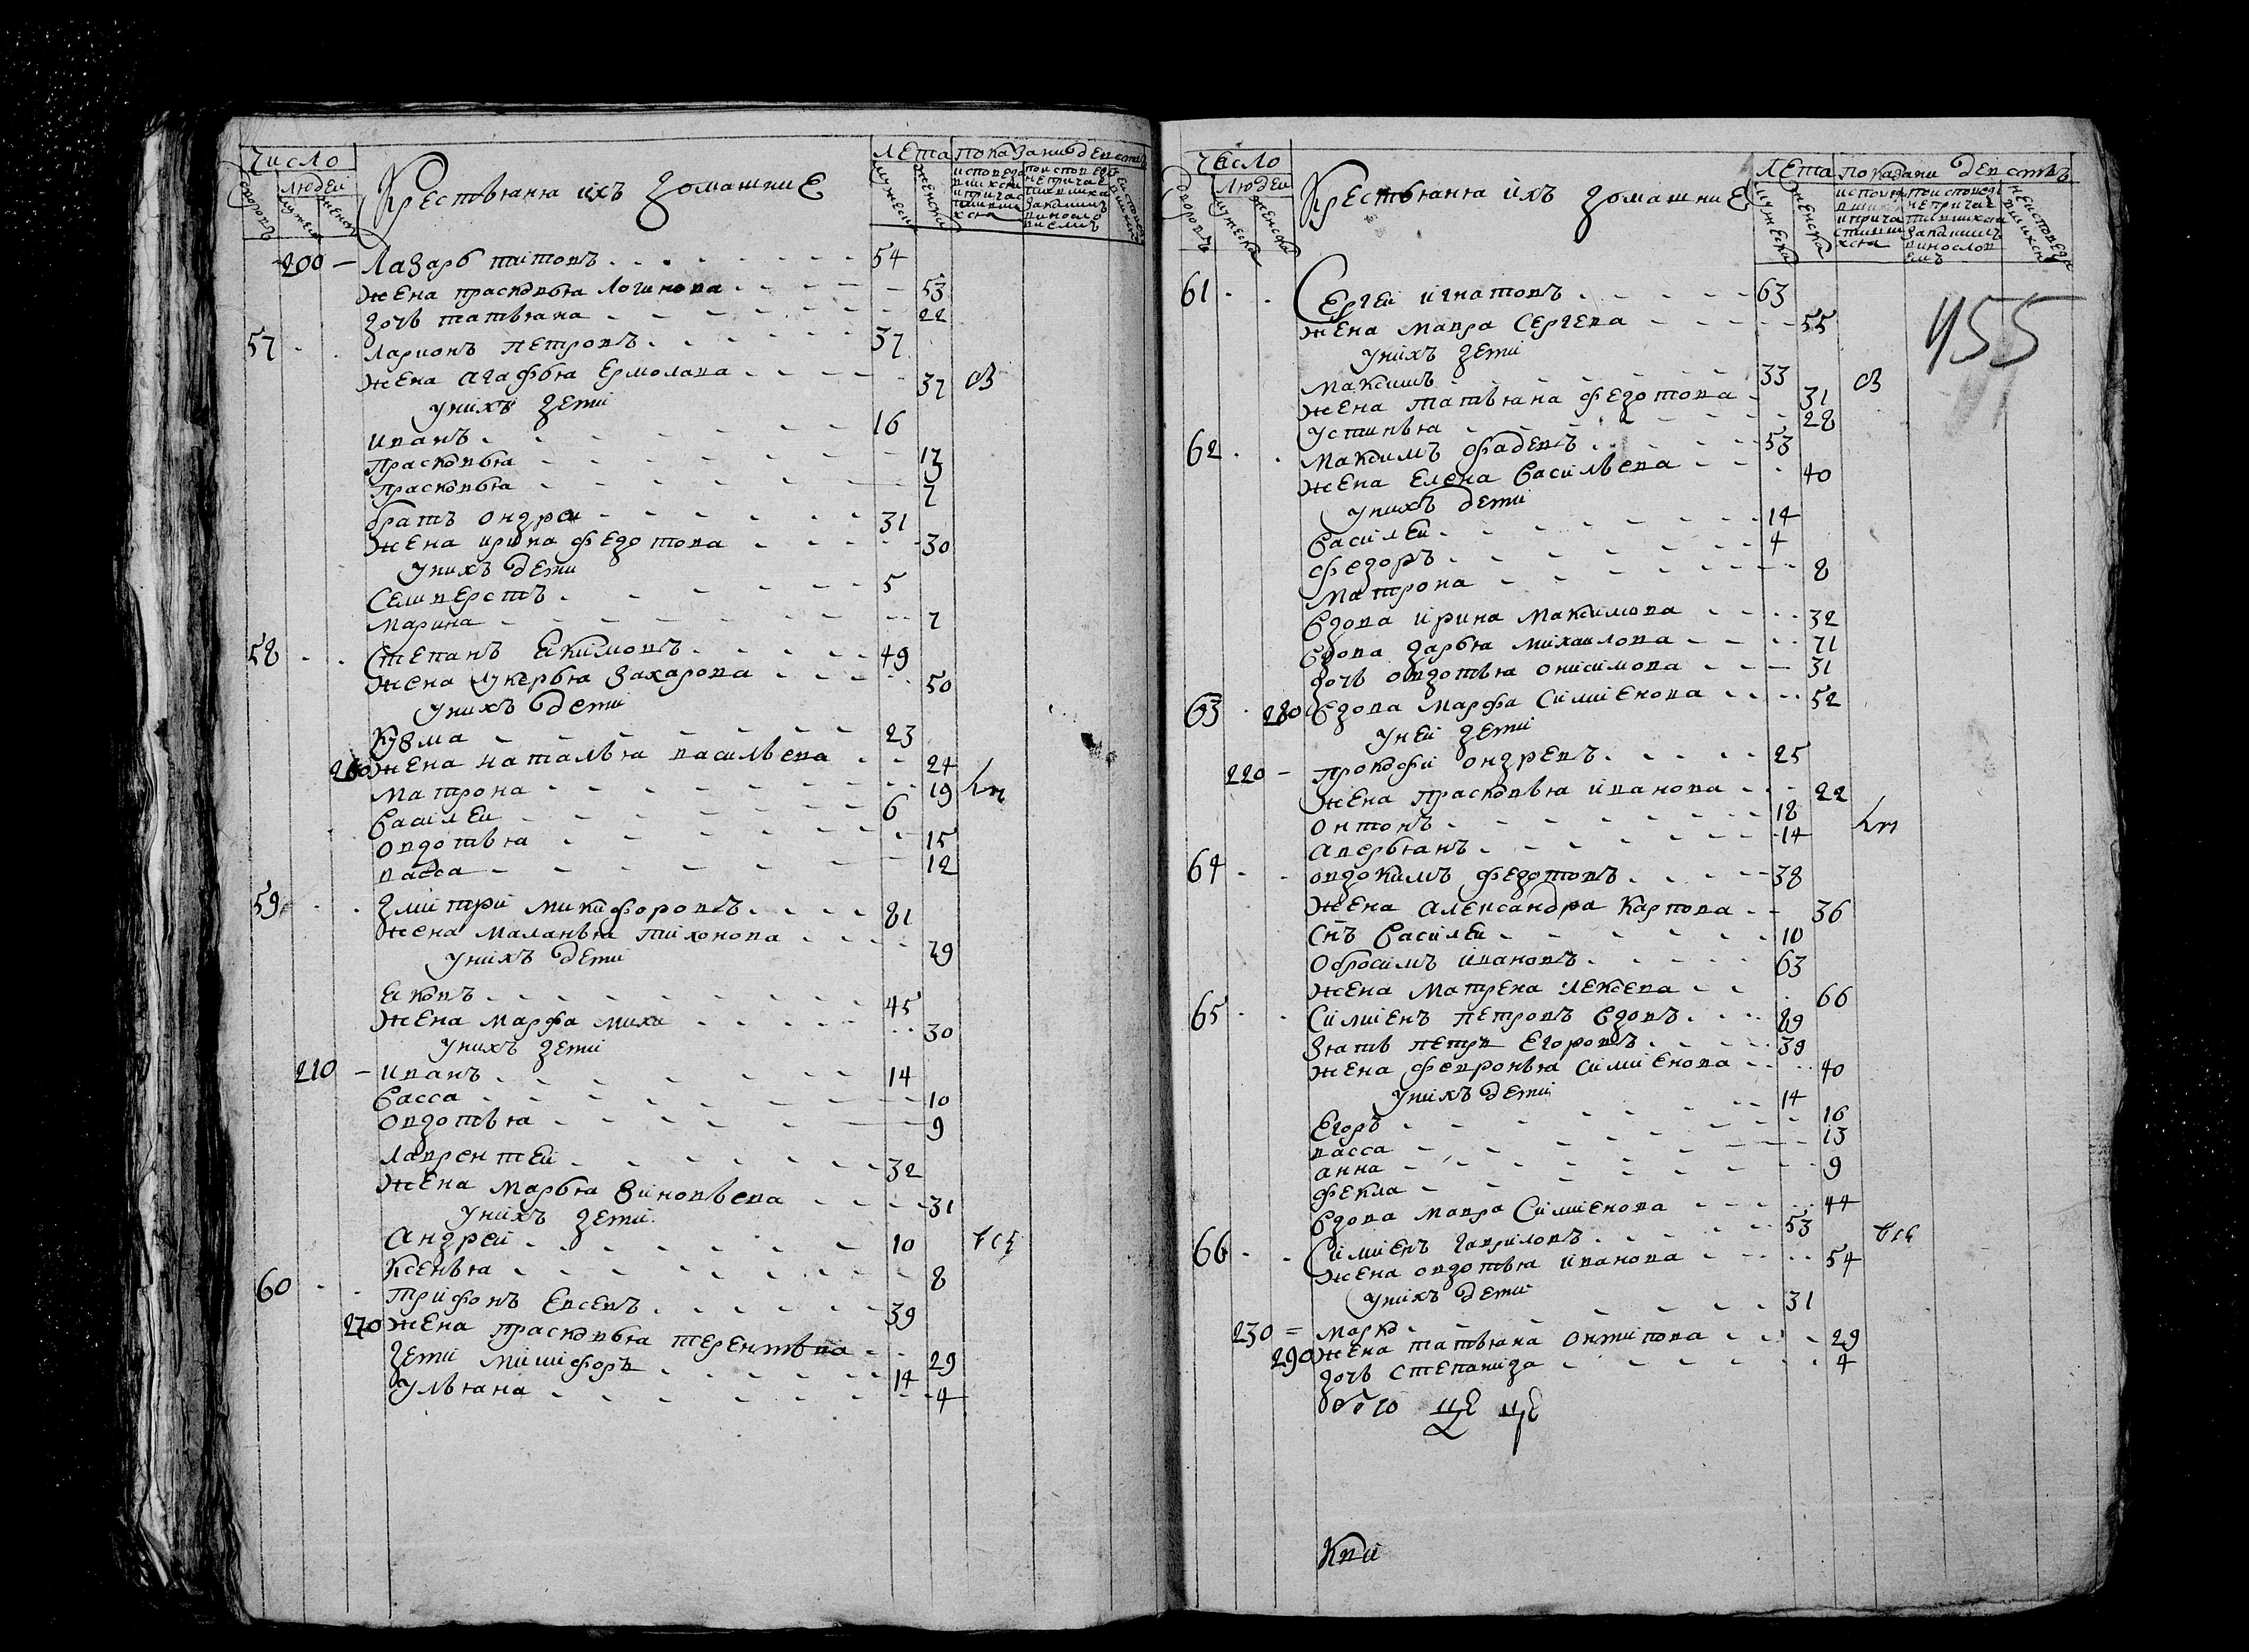 Число
Людей
Крестьяня ихъ домашние
Лета
показани действ
200 — Лазарь титовъ 54
жена прасковья логинова 53
дочь татьяна 22
57 Ларионъ петровъ 37
жена агафья ермолава 37
уних дети
иванъ 16
прасковья 13
прасковья 7
братъ ондреи 31
жена ирина федотова 30
унихъ дети
селиверстъ 5
марина 7
58 Степанъ екимовъ 49
жена лукерья захарова 50
унихъ дети
кузма 23
260 жена наталья васильева 24
матрона 19
василеи 6
овдотья 15
васса 12
59 дмитри микифоровъ 81
жена маланья тихонова 79
унихъ дети
ековъ 45
жена марфа миха 30
унихъ дети
210 — иванъ 14
васса 10
овдотья 9
лаврентеи 32
жена марья зиновьева 31
унихъ дети
андреи 10
ксенья 8
60 трифонъ евсевъ 39
270 жена прасковья терентьва 29
дети никифоръ 14
ульяна 4
Число
Людеи
Крестьяня ихъ домашние
Лета
показани девства
455
61 Сергеи игнатовъ 63
жена мавра сергева 55
унихъ дети
максимъ 33
жена татьяна федотова 31
устинья 28
62 максимъ фадевъ 53
жена елена васильева 40
унихъ дети
василеи 14
федоръ 4
матрона 8
вдова ирина максимова 32
вдова дарья михаилова 71
дочь овдотья онисимова 31
63 280 вдова марфа симиенова 52
унеи дети
220 — прокофи ондревъ 25
жена прасковья иванова 22
онтонъ 18
аверьянъ 14
64 овдокимъ федотовъ 38
жена александра карпова 36
снъ василеи 10
обросимъ ивановъ 63
жена матрена лексева 66
65 симиенъ петровъ вдовъ 89
зять петръ егоровъ 39
жена февронья симиенова 40
унихъ дети
егоръ 14
васса 16
анна 13
фекла 9
вдова мавра симиенова 44
66 симиенъ гавриловъ 53
жена овдотья иванова 54
унихъ дети
230 = марко 31
290 жена татьяна онтипова 29
дочь степанида 4